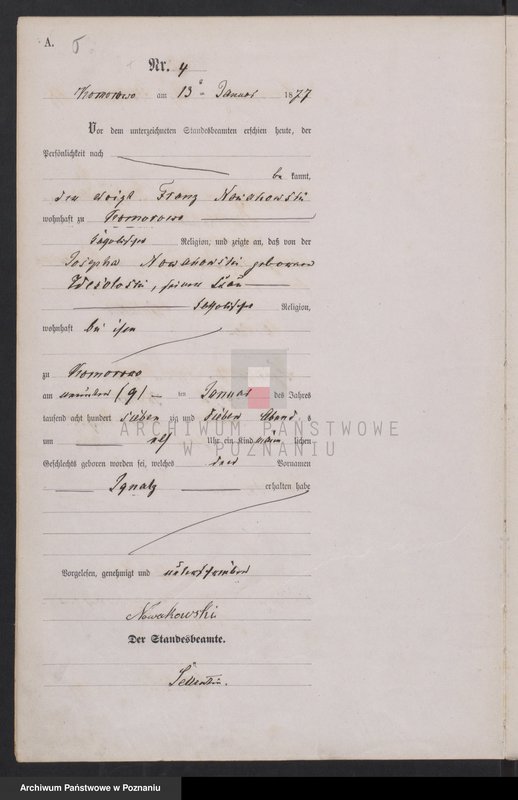 A.
5.
Nr. 4
Komorowo am 13 Januar 1877
Vor dem unterzeichneten Standesbeamten erschien heute, der
Persönlichkeit nach
be kannt,
der Voigt Franz Nowakowski
wohnhaft zu Komorowo
katholischer Religion, und zeigte an, daß von der
Josepha Nowakowski geborenen
seiner Frau
katholischer Religion,
wohnhaft bei ihm
zu Komorowo
am neunten (9) ten Januar des Jahres
tausend acht hundert sieben zig und sieben Abend s
um elf Uhr ein Kind männ lichen
Geschlechts geboren worden sei, welches den Vornamen
Ignatz erhalten habe
Vorgelesen, genehmigt und unterschrieben
Nowakowski
Der Standesbeamte.
ARCHIWUM PAŃSTWOWE
W POZNANIU
Archiwum Państwowe w Poznaniu